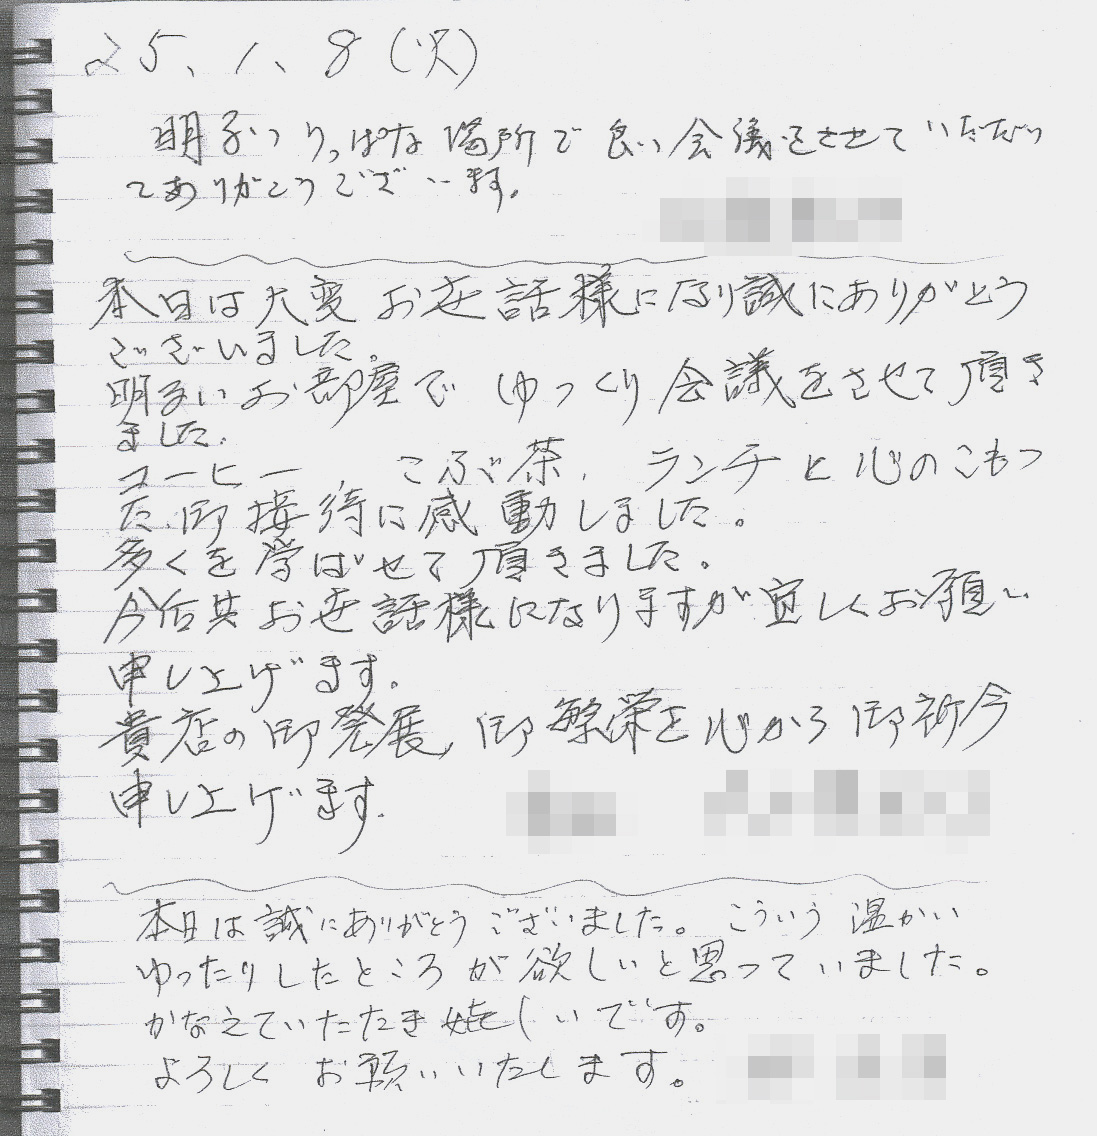 25、1、8(火)
明るいりっぱな場所で良い会議をさせていただい
てありがとうございます。
本日は大変お世話様になり誠にありがとう
ございました。
明るいお部屋でゆっくり会議をさせて頂き
ました。
コーヒー、こぶ茶、ランチと心のこもっ
た御接待に感動しました。
多くを学ばせて頂きました。
今后共お世話様になりますが宜しくお願い
申し上げます。
貴店の御発展、御繁栄を心から御祈念
申し上げます。
本日は誠にありがとうございました。こういう温かい
ゆったりしたところが欲しいと思っていました。
かなえていただき嬉しいです。
よろしくお願いいたします。